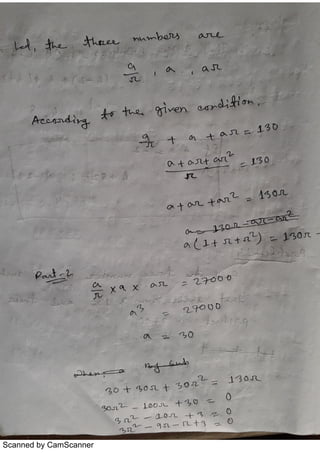 Let, the three numbers are
a/r , a , ar
According to the given condition,
a/r + a + ar = 130
(a + ar + ar²)/r = 130
a + ar + ar² = 130r
a = 130r - ar - ar²
a(1 + r + r²) = 130r -
Part-2 a/r × a × ar = 27000
a³ = 27000
a = 30
30 + 30r + 30r² = 130r
30r² - 100r + 30 = 0
3r² - 10r + 3 = 0
3r² - 9r - r + 3 = 0
Scanned by CamScanner